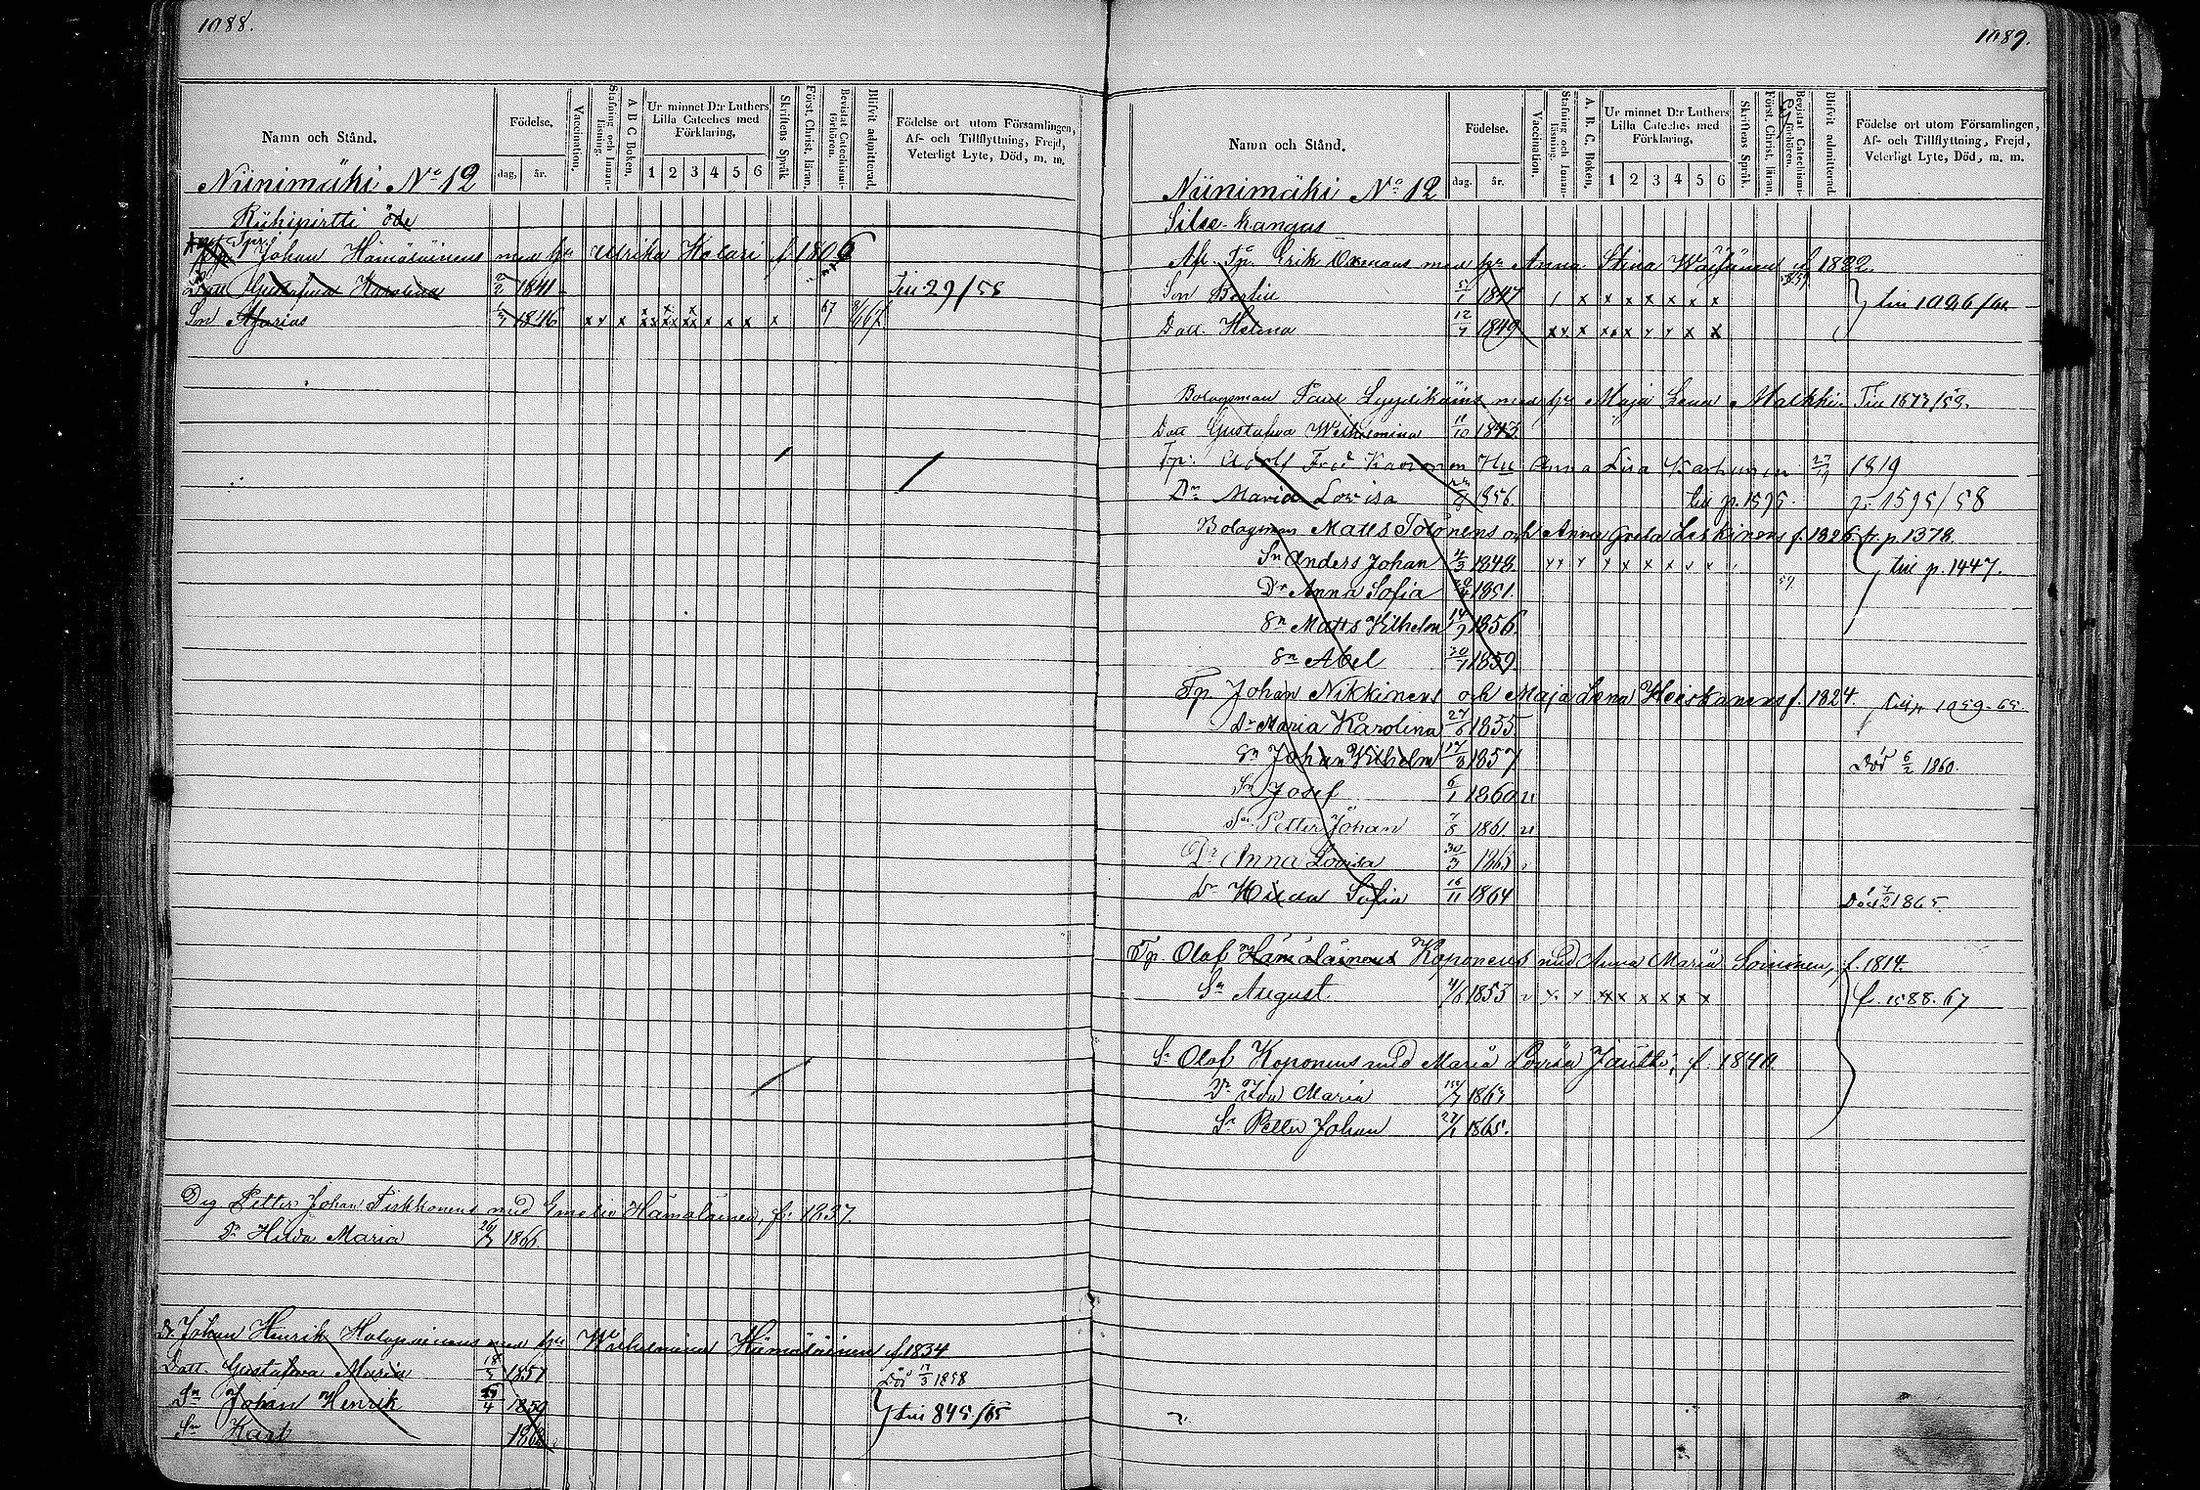 1088.
Namn och Stånd.
Födelse,
dag, år.
Vaccination,
Stafning och Innan-läsning.
A B C Boken,
Ur minnet D:r Luthers Lilla Cateches med Förklaring,
1 2 3 4 5 6
Skriftens Språk
Först. Christ. läran,
Bevistat Catechismi-förhören.
Blifvit admitterad.
Födelse ort utom Församlingen, Af- och Tillflyttning, Frejd, Veterligt Lyte, Död, m. m.
Niinimäki No 12
Riihipirtti öde
Johan Hämäläinens med hu Ulrika Kolari f 1806
Dott Gustafva Karolina 1841 Till 29/58
Son Asarias 1846 x x x x x x x x x x 67
Petter Johan Piskkonens med Emelie Hämäläinen, f. 1837.
Dr Hilda Maria 26/7 1866.
Johan Henrik Holopainens med hu Wilhelmina Hämäläinen f 1834
Dott. Gustafva Maria 18/5 1857 Död 17/3 1858
Sn Johan Henrik 1859 till 845/65
Sn Karl 1862
1089.
Namn och Stånd.
Födelse.
dag. år.
Vaccination.
Stafning och Innan-läsning.
A. B. C. Boken,
Ur minnet D:r Luthers Lilla Cateches med Förklaring,
1 2 3 4 5 6
Skriftens Språk.
Först. Christ. läran,
Bevistat Catechismi-förhören.
Blifvit admitterad.
Födelse ort utom Församlingen, Af- och Tillflyttning, Frejd, Veterligt Lyte, Död, m. m.
Niinimäki No 12
kangas
Tp. Erik med hu Anna Stina f 1822.
Son 1847 x x x x x x x till
Dott. Helena 12/7 1849 x x x x x x x x x
Bolagsman Paul Lyydikäins med hu Maja Lena Malkki Till 1673/59.
Dott Gustafva Wilhelmina 11/10 1843
Tp. Adolf Fred Hu Anna Lisa Karhunen 1819
Dr Maria Lovisa 1856. till p. 1595. 1595/58
Bolagman Matts Tolönens och Anna Greta Leskinens f. 1826 fr p 1378.
Sn Anders Johan 1848 x x x x x x x x x till p. 1447.
Dr Anna Sofia 1851.
Sn Matts Vilhelm 14/9 1856.
Sn Abel 30/7 1859.
Tp Johan Nikkinens och Maja Lena Heiskanens f. 1824. 1059-65
Dr Maria Karolina 27/6 1855
Sn Johan Vilhelm 17/3 1857 Död 6/2 1860.
Sn Josef 6/1 1860
Sn Petter Johan 7/8 1861
Dr Anna Lovisa 30/3 1863
Dr Hilda Sofia 16/11 1864 Död 7/2 1865.
Tp. Olof Hämäläinens Koponens med Anna Maria Soininen, f. 1814.
Sn August. 1853 x x x x x x x x fr. 1088. 67
Sn Olof Koponens med Maria Lovisa f. 1840.
Dr Ida Maria 1863
Sn Petter Johan 27/1 1865.